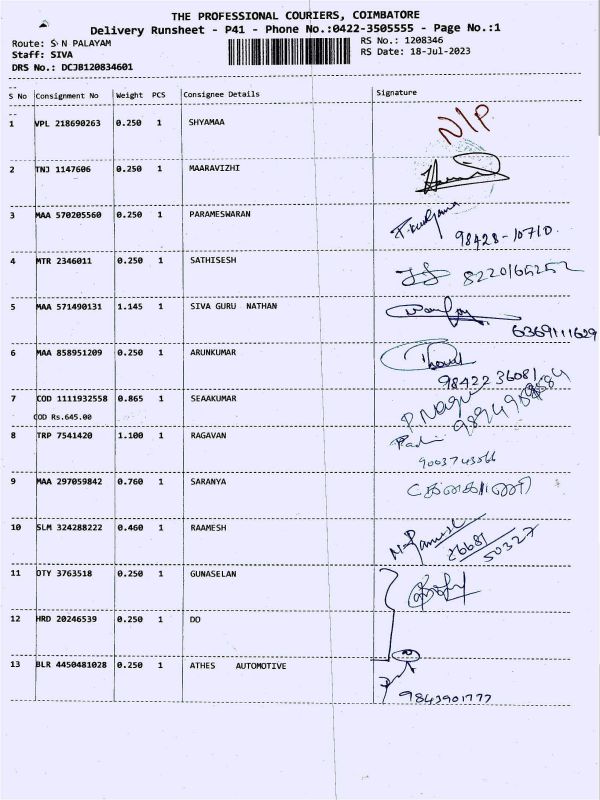 THE PROFESSIONAL COURIERS, COIMBATORE
Delivery Runsheet - P41 - Phone No.:0422-3505555 - Page No.:1
Route: S N PALAYAM RS No.: 1208346
Staff: SIVA RS Date: 18-Jul-2023
DRS No.: DCJB120834601
S No Consignment No Weight PCS Consignee Details Signature
1 VPL 218690263 0.250 1 SHYAMAA N/P
2 TNJ 1147606 0.250 1 MAARAVIZHI
3 MAA 570205560 0.250 1 PARAMESWARAN
98428-10710
4 MTR 2346011 0.250 1 SATHISESH
5 MAA 571490131 1.145 1 SIVA GURU NATHAN
6369111629
6 MAA 858951209 0.250 1 ARUNKUMAR
98422 36081
7 COD 1111932558 0.865 1 SEAAKUMAR
P. Nagu
COD Rs.645.00
8 TRP 7541420 1.100 1 RAGAVAN
9003743566
9 MAA 297059842 0.760 1 SARANYA
10 SLM 324288222 0.460 1 RAAMESH
50327
11 OTY 3763518 0.250 1 GUNASELAN
12 HRD 20246539 0.250 1 DO
13 BLR 4450481028 0.250 1 ATHES AUTOMOTIVE
9843901777